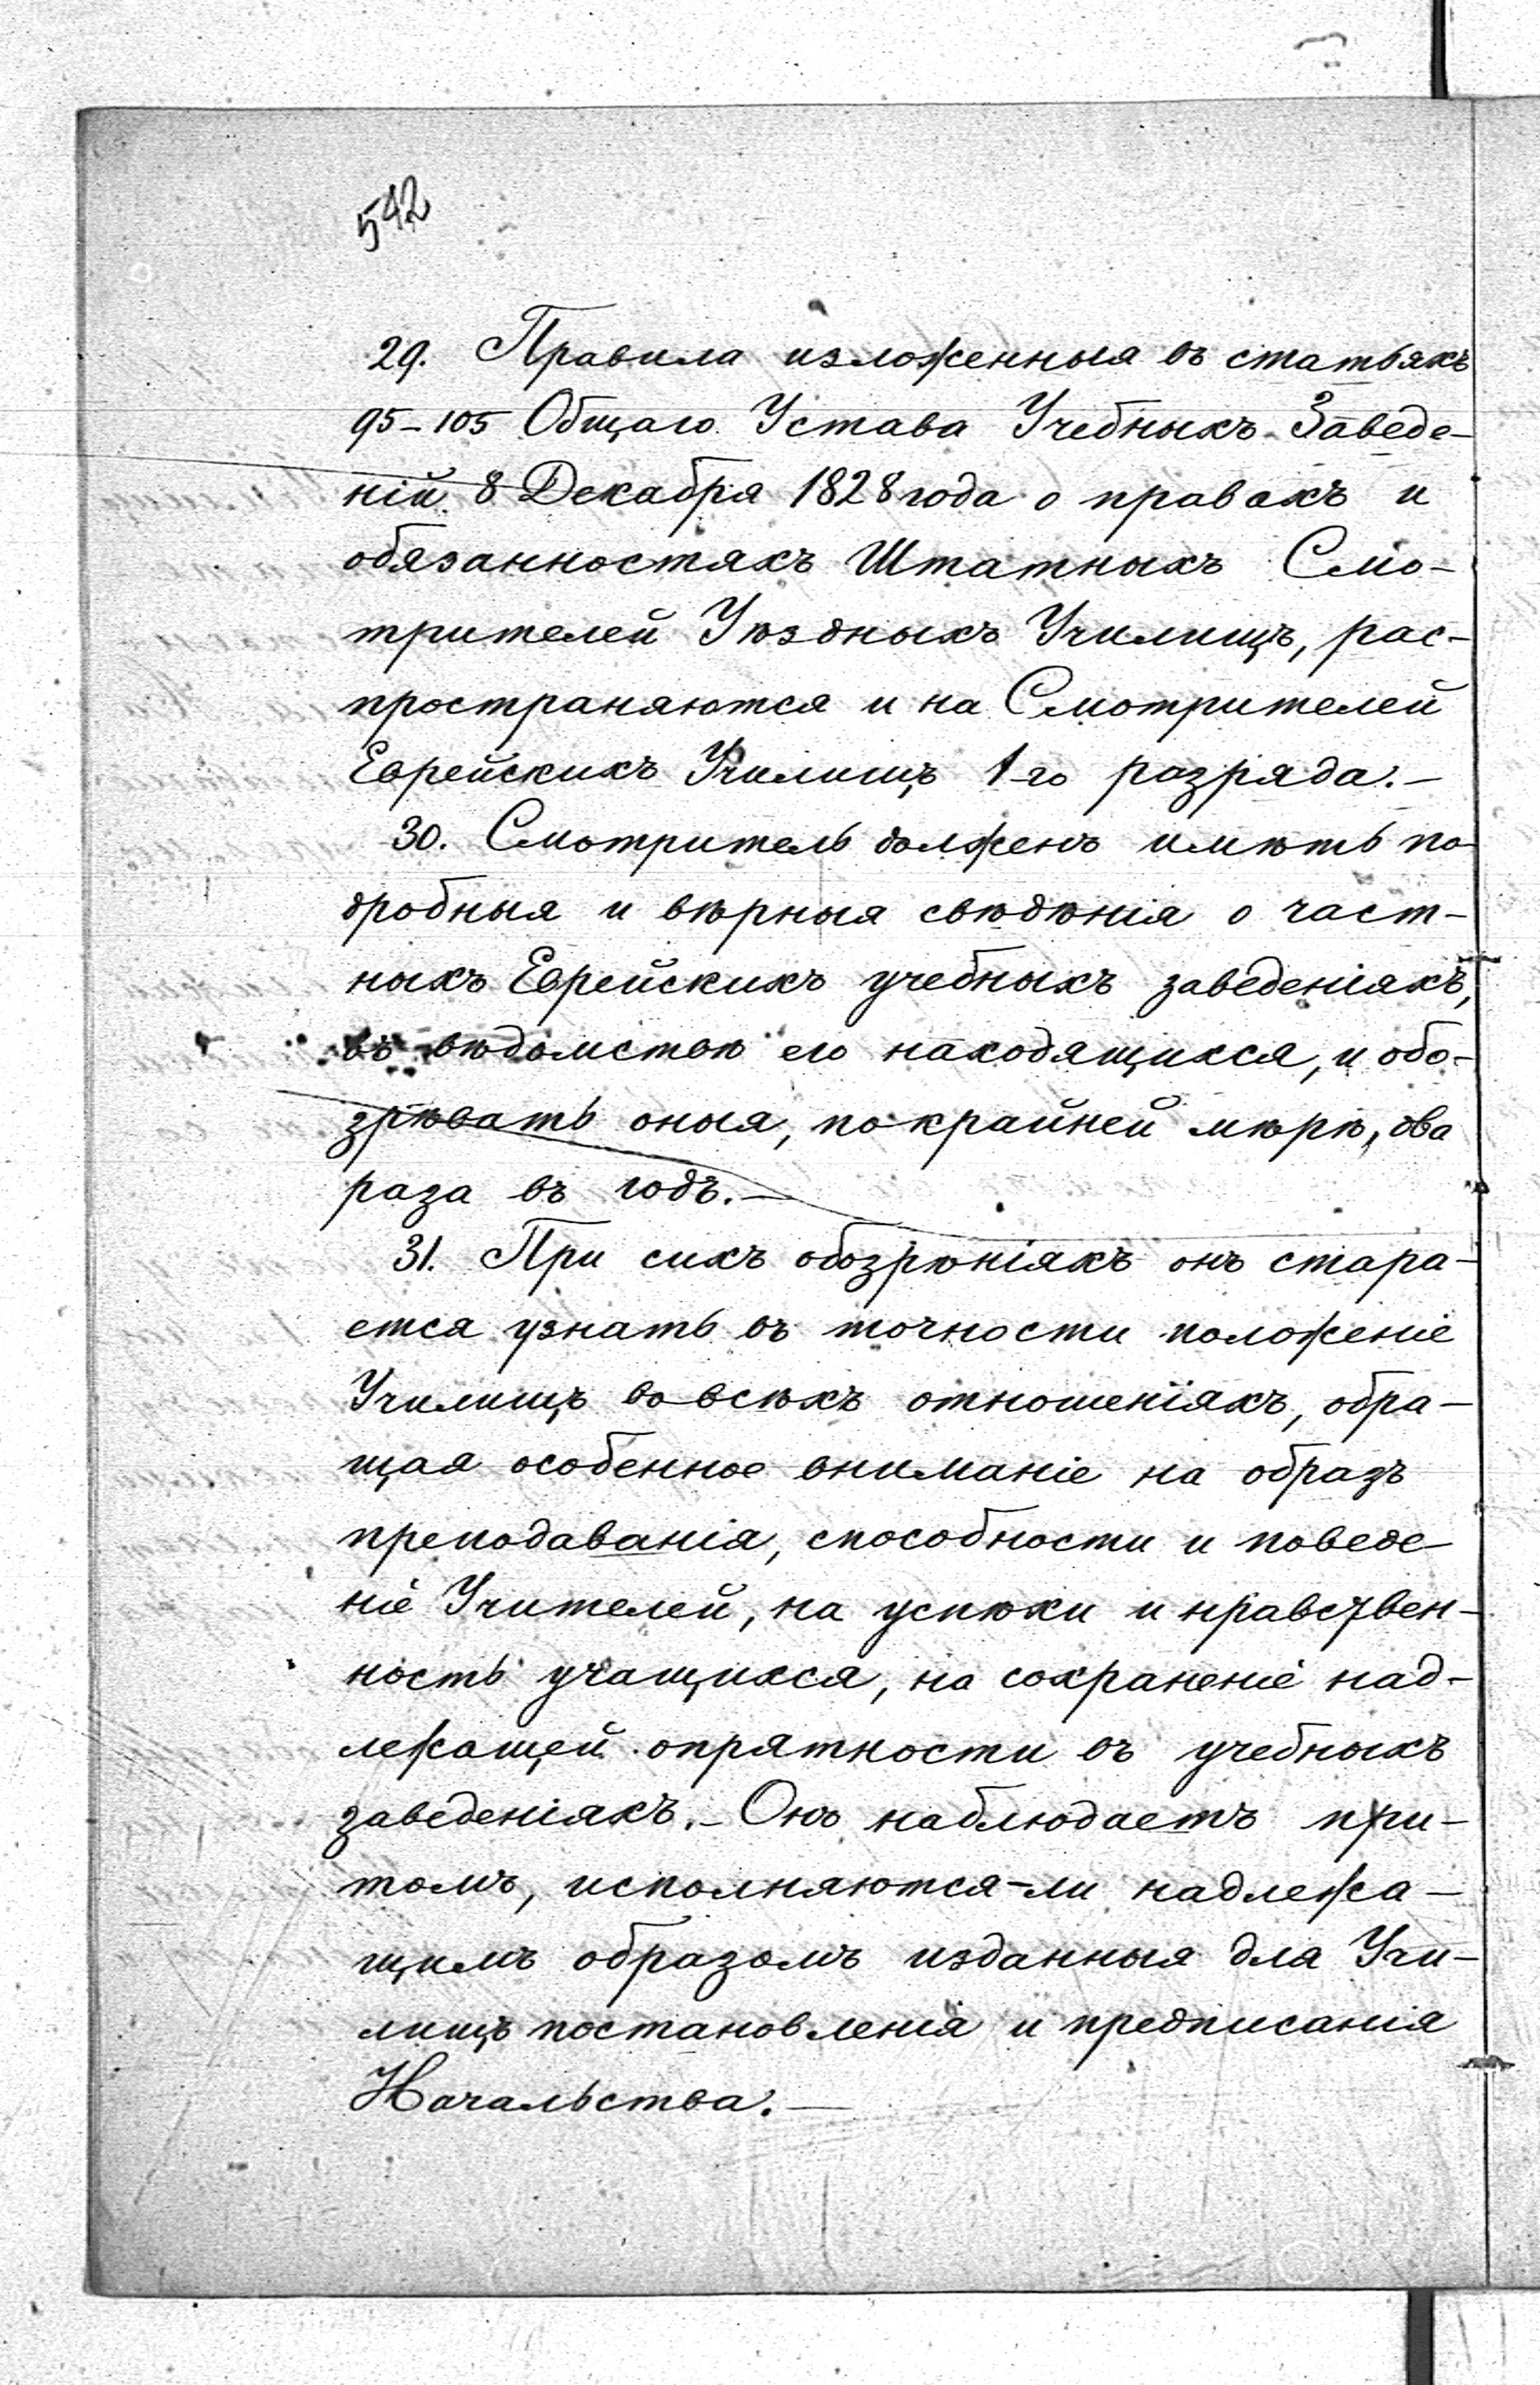 542
29. Правила изложенныя въ статьяхъ
95–105 Общаго Устава Учебныхъ Заведе-
ній 8 Декабря 1828 года о правахъ и
обязанностяхъ Штатныхъ Смо-
трителей Уѣздныхъ Училищъ, рас-
пространяются и на Смотрителей
Еврейскихъ Училищъ 1-го разряда.–
30. Смотритель долженъ имѣть по-
дробныя и вѣрныя свѣдѣнія о част-
ныхъ Еврейскихъ учебныхъ заведеніяхъ,
въ вѣдомствѣ его находящихся, и обо-
зрѣвать оныя, по крайней мѣрѣ, два
раза въ годъ.–
31. При сихъ обозрѣніяхъ онъ стара-
ется узнать въ точности положеніе
Училищъ во всѣхъ отношеніяхъ, обра-
щая особенное вниманіе на образъ
преподаванія, способности и поведе-
ніе Учителей, на успѣхи и нравствен-
ность учащихся, на сохраненіе над-
лежащей опрятности въ учебныхъ
заведеніяхъ.– Онъ наблюдаетъ при-
томъ, исполняются-ли надлежа-
щимъ образомъ изданныя для Учи-
лищъ постановленія и предписанія
Начальства.–